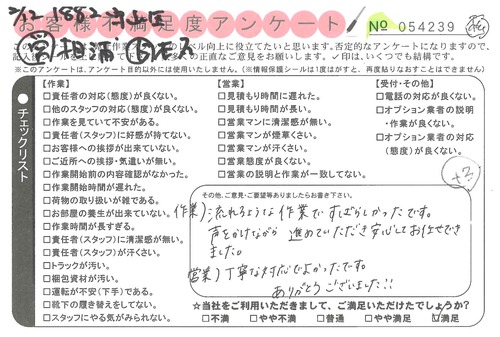 お客様不満足度アンケート
No 054239
記入後
※このアンケートは、アンケート目的以外には使用いたしません。(※情報保護シールは1度がはすと、再度貼りなおすことはできません)
チェックリスト
【作業】
□責任者の対応(態度)が良くない。
□他のスタッフの対応(態度)が良くない。
□作業を見ていて不安がある。
□責任者(スタッフ)に好感が持てない。
□お客様への挨拶が出来ていない。
□ご近所への挨拶・気遣いが無い。
□作業開始前の内容確認がなかった。
□作業開始時間が遅れた。
□荷物の取り扱いが雑である。
□お部屋の養生が出来ていない。
□作業時間が長すぎる。
□責任者(スタッフ)に清潔感が無い。
□責任者(スタッフ)が汗くさい。
□トラックが汚い。
□梱包資材が汚い。
□運転が不安(下手)である。
□靴下の履き替えをしてない。
□スタッフにやる気がみられない。
【営業】
□見積もり時間に遅れた。
□見積もり時間が長い。
□営業マンに清潔感が無い。
□営業マンが煙草くさい。
□営業マンが汗くさい。
□営業態度が良くない。
□営業の説明と作業が一致してない。
【受付・その他】
□電話の対応が良くない。
□オプション業者の説明
・作業が良くない。
□オプション業者の対応
(態度)が良くない。
+3
その他、ご意見・ご要望等ありましたらお書き下さい。
作業)流れるような作業ですばらしかったです。
声をかけながら進めていただき安心してお任せでき
ました。
営業)丁寧な対応でよかったです。
ありがとうございました!!
☆当社をご利用いただきまして、ご満足いただけたでしょうか?
□不満 □やや不満 □普通 □やや満足 ☑満足